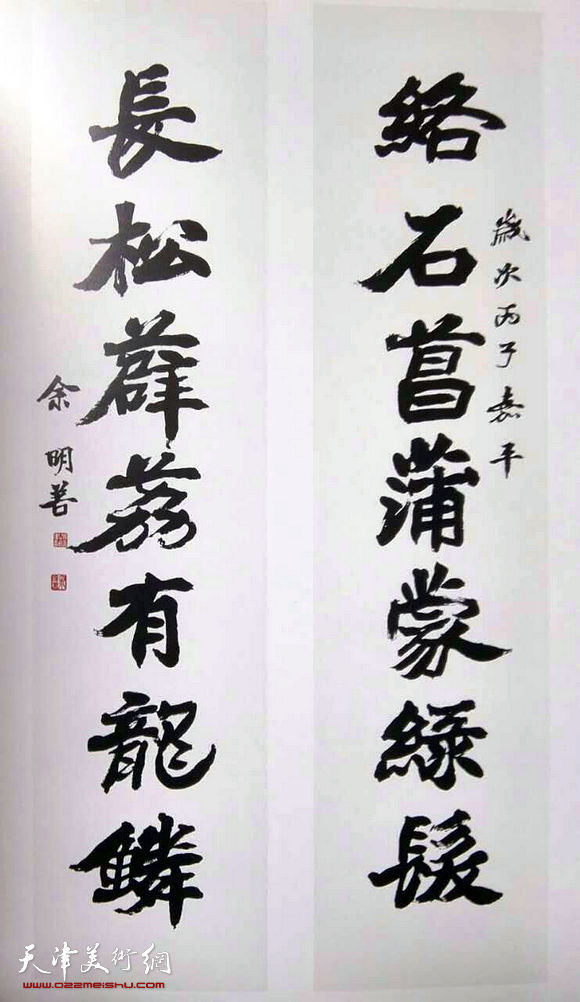 歲次丙子嘉平
絡石菖蒲蒙綠髮
長松薜荔有龍鱗
余明善
天津美術網
www.022meishu.com